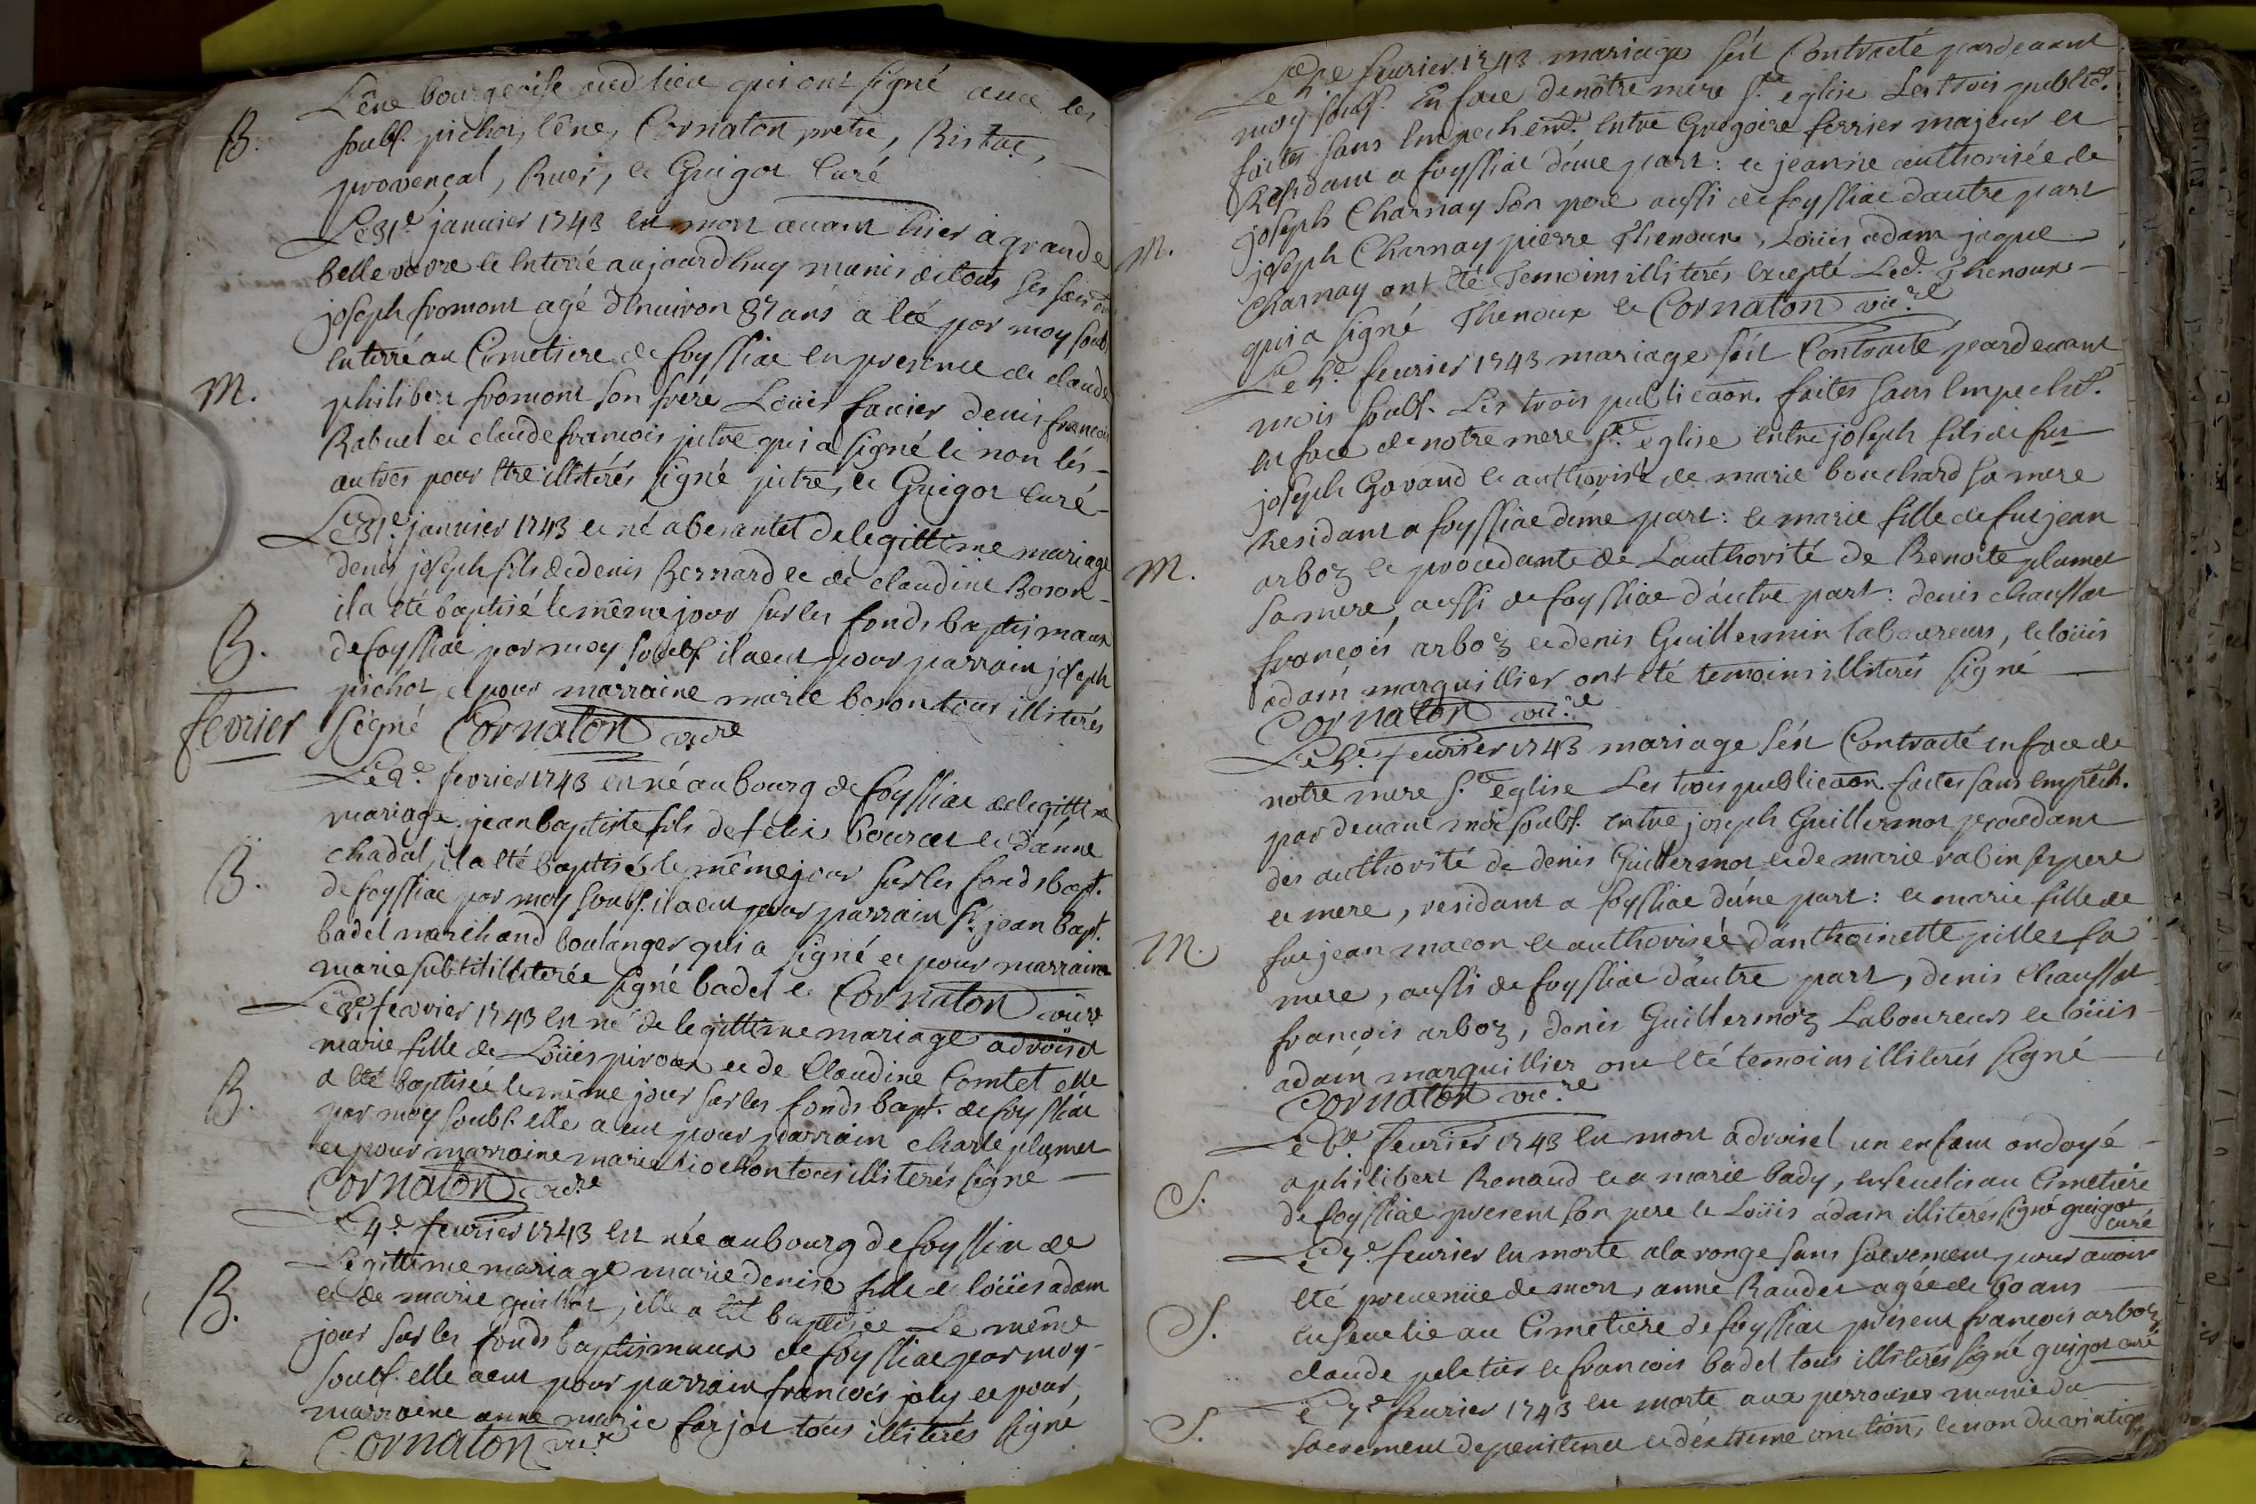 Lêne bourgeoise aud. lieu qui ont signé avec les
B.
soubs. pichoz, lêne, Cornaton, pretre,
provençal, Ruer, et Guigot Curé
Le 31e janvier 1743 est mort avant hier a grande
bellevavre et enterré aujourdhuy munis de tous ses sacr
joseph fromont agé d'environ 37 ans a été par moy soub
enterré au Cimetiere de foyssiac en presence de claude
M.
philibert fromont son frère Loüis favier denis francois
Rabuel et claude francois jutre qui a signé et non les
autres pour etre illitérés signé jutre, et Guigot Curé
Le 31e janvier 1743 et né a besantet de legittime mariage
denis joseph fils de denis Bernard et de claudine Boron
il a été baptisé le même jour sur les fonds baptismaux
B.
de foyssiac par moy soubs. il a eut pour parrain joseph
pichoz et pour marraine marie boron tous illiterés
fevrier
signé Cornaton vicre
Le 2e fevrier 1743 est né au bourg de foyssiac de legittime
mariage jean baptiste fils de felix bourcet et d'anne
chadal, il a été baptisé le même jour sur les fonds bapt.
B.
de foyssiac par moy soubs. il a eut pour parrain Sr. jean bapt.
badel marchand boulanger qui a signé et pour marraine
marie subtil illiterée signé badel et Cornaton vicre
Le 3e fevrier 1743 est né de legittime mariage adroisel
marie fille de Loüis piroux et de Claudine Comtet elle
a été baptisée le même jour sur les fonds bapt. de foyssiac
B.
par moy soubs. elle a eut pour parrain charle plumet
et pour marraine marie tiochon tous illiterés signé
Cornaton vicre
Le 4e fevrier 1743 est née au bourg de foyssia de
Legittime mariage marie denise fille de loüis adam
et de marie guillot, elle a été baptisée Le même
B.
jour sur les fonds baptismaux de foyssiac par moy
soubs. elle a eut pour parrain francois joly et pour
marraine anne marie farjot tous illiterés signé
Cornaton vicre
Le 5e fevrier 1743 mariage s'est Contracté pardevant
moy soubs. En face de nôtre mere Ste. eglise Les trois public.
faites sans Empechemt. Entre Gregoire ferrier majeur et
Résidant a foyssiac d'une part: et jeanne authorisée de
joseph Charnay Son pere aussi de foyssiac d'autre part
M.
joseph Charnay pierre Thenoux, Loüis adam jaque
Charnay ont été Temoins illiterés Excepté Led. Thenoux
qui a signé Thenoux et Cornaton vicre
Le 5e fevrier 1743 mariage s'est Contracté pardevant
mois soubs. Les trois publicaon. faites sans Empecht.
en face de notre mere Ste eglise Entre joseph fils de fut
joseph Gavand et authorisé de marie bouchard sa mere
Residant a foyssiac d'une part: et marie fille de fut jean
M.
arboz et procedante de Lauthorité de Benoite plumet
sa mere, aussi de foyssiac d'autre part: denis chaussat
françois arboz et denis Guillermin laboureurs, et loüis
adam marguillier ont été temoins illiterés signé
Cornaton vicre
Le 5e fevrier 1743 mariage s'est Contracté en face de
notre mere Ste eglise Les trois publicaon. faites sans empech.
par devant moi soubs. entre joseph Guillermoz procedant
des authorité de denis Guillermoz et de marie rabin ses pere
et mere, residant a foyssiac d'une part: et marie fille de
M.
fut jean macon et authorisée d'anthoinette pillet sa
mere, aussi de foyssiac d'autre part, denis Chaussat
françois arboz, denis Guillermoz Laboureurs et loüis
adam marguillier ont été temoins illiterés signé
Cornaton vicre
Le 6e fevrier 1743 est mort adroisel un enfant ondoyé
S.
a philibert Renaud et a marie bady, ensevelis au Cimetiere
de foyssiac present son pere et Loüis adam illiterés signé guigot curé
Le 7e fevrier est morte a la ronge sans sacrement pour avoir
été prevenüe de mort, anne Raudet agée de 60 ans
S.
ensevelie au Cimetiere de foyssiac present francois arboz
claude peletier et francois badel tous illiterés signé guigot curé
Le 7e fevrier 1743 est morte aux perrouses munie du
S.
sacrement de penitence et d'extreme onction, et non du viatique